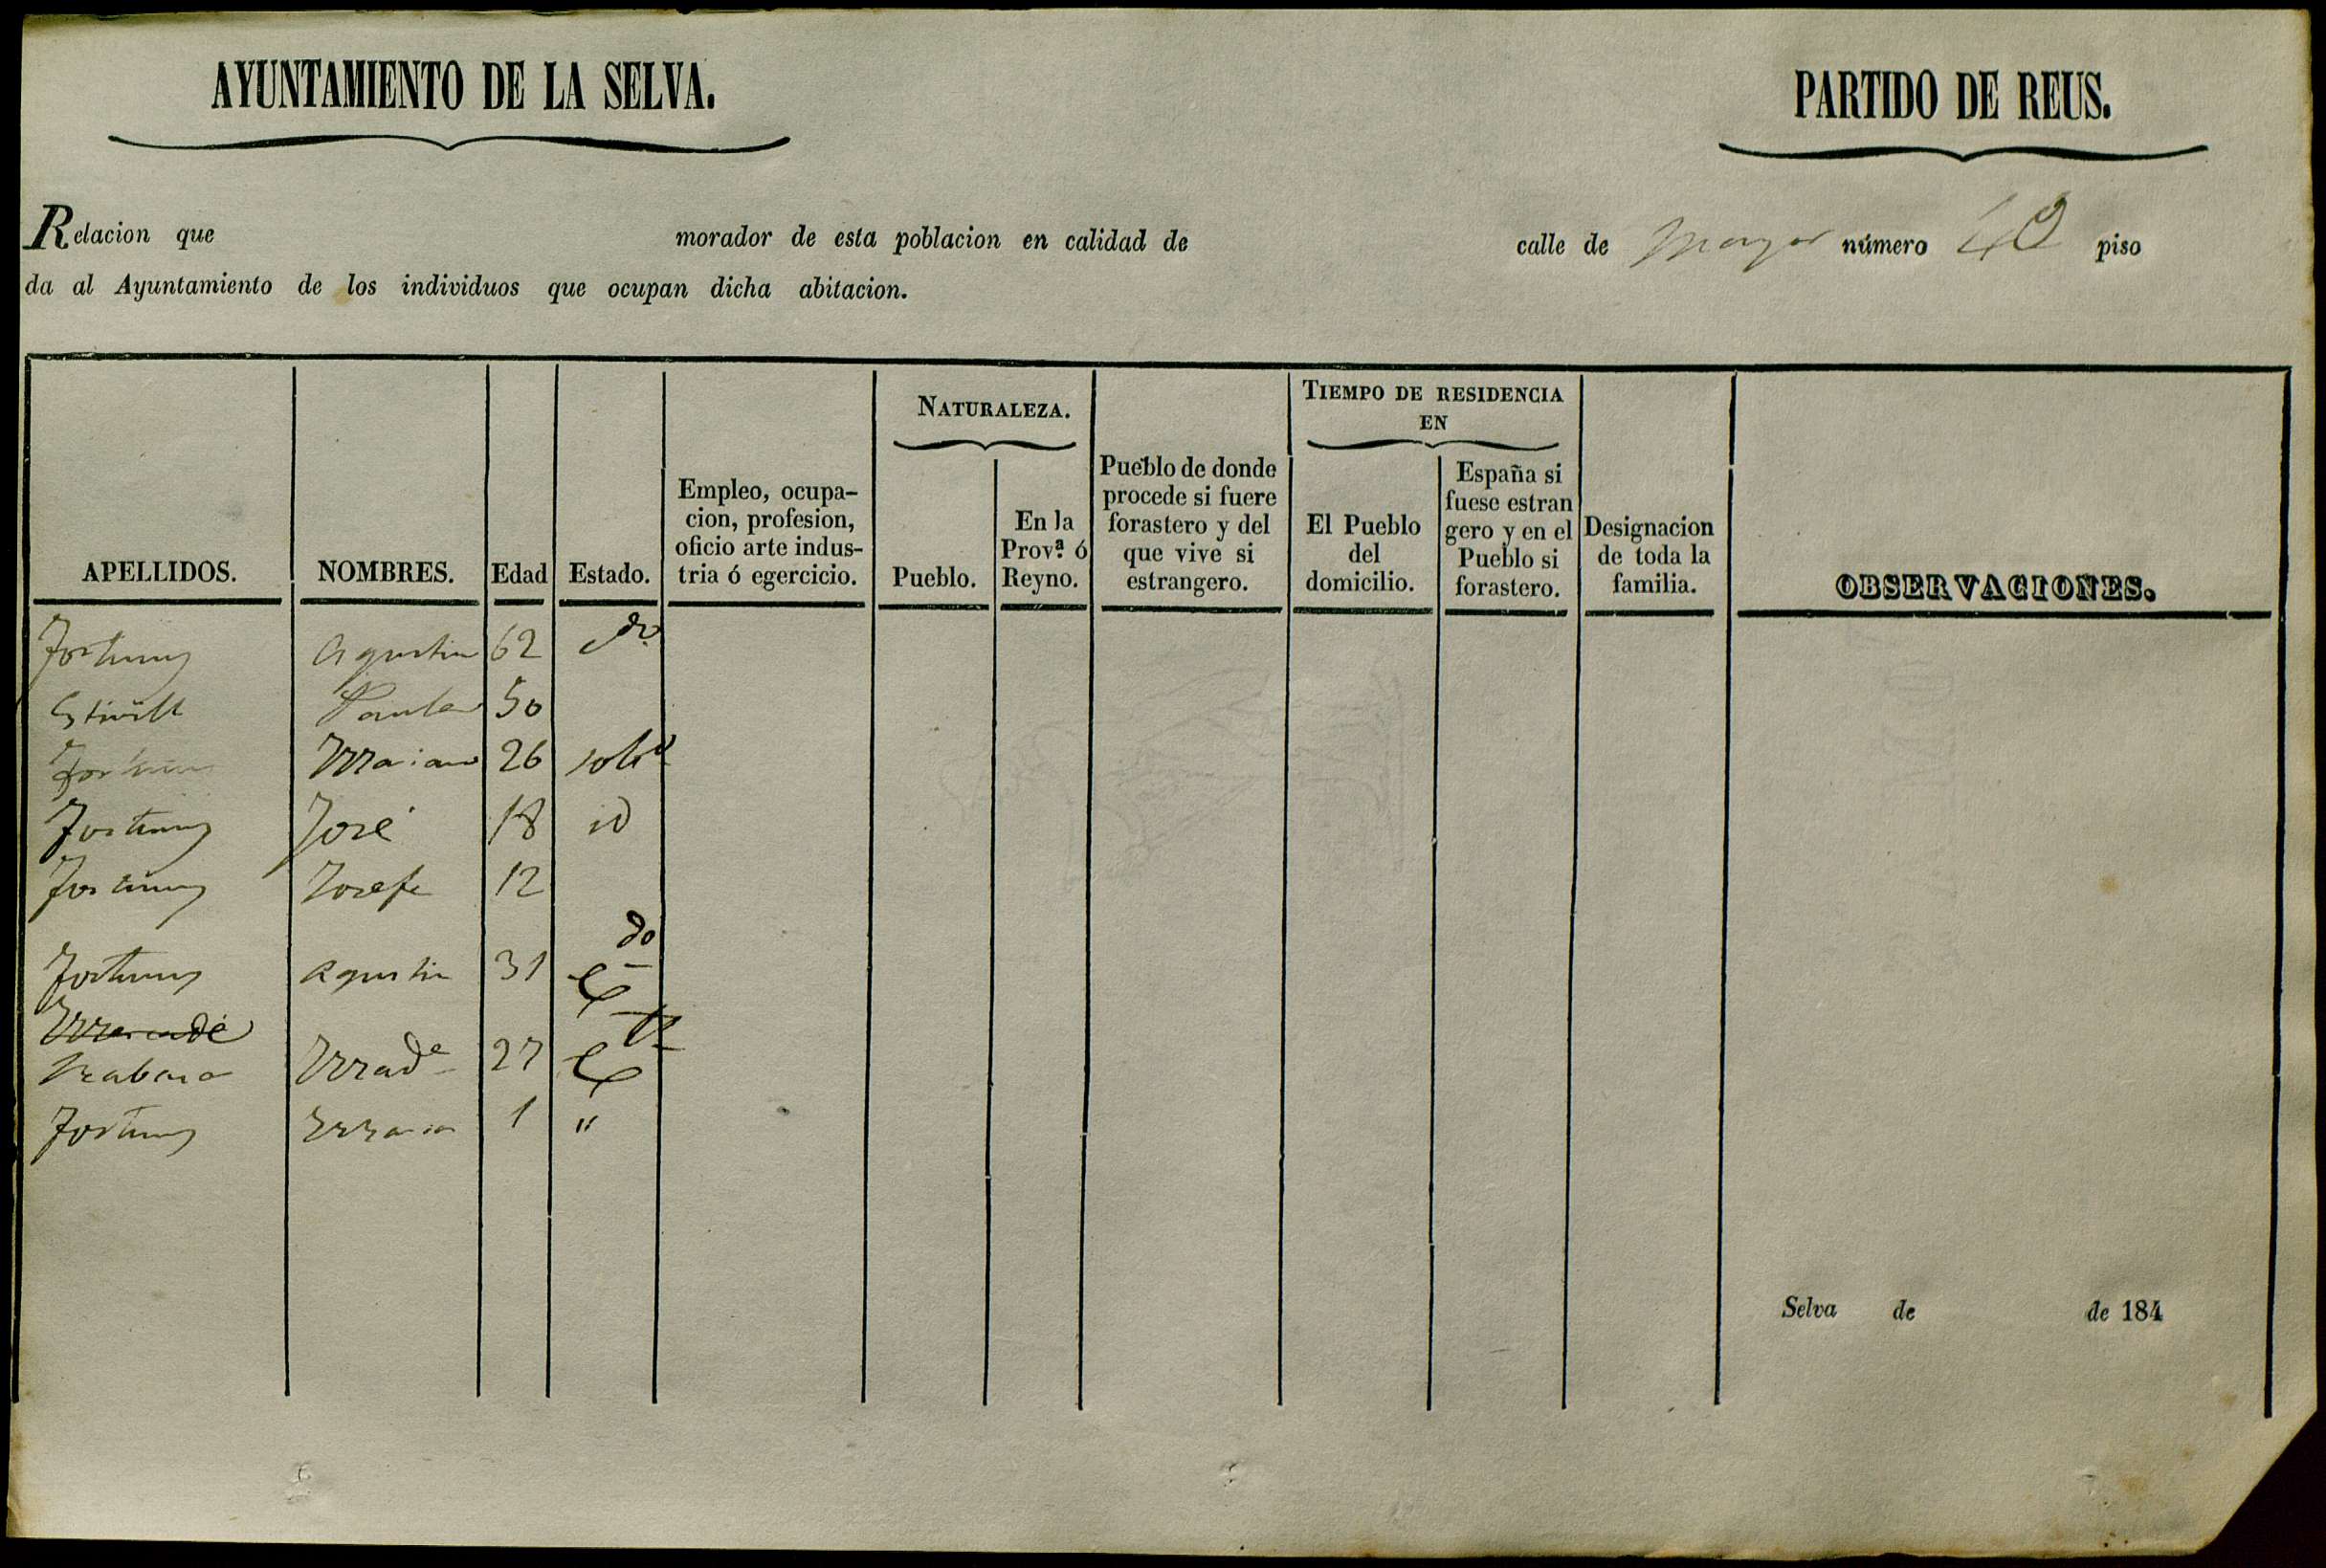 AYUNTAMIENTO DE LA SELVA.
PARTIDO DE REUS.
Relacion que morador de esta poblacion en calidad de calle de Mayor número 40 piso
da al Ayuntamiento de los individuos que ocupan dicha abitacion.
APELLIDOS.
NOMBRES.
Edad
Estado.
Empleo, ocupa-
cion, profesion,
oficio arte indus-
tria ó egercicio.
NATURALEZA.
Pueblo.
En la
Prov.ª ó
Reyno.
Pueblo de donde
procede si fuere
forastero y del
que vive si
estrangero.
TIEMPO DE RESIDENCIA
EN
El Pueblo
del
domicilio.
España si
fuese estran
gero y en el
Pueblo si
forastero.
Designacion
de toda la
familia.
OBSERVACIONES.
Fortuny Agustin 62
Estivill Paula 50
Fortuny Mariano 26 solt.o
Fortuny José 18 id
Fortuny Josefa 12
Fortuny Agustin 31
Mercadé
27
Fortuny Maria 1 "
Selva de de 184